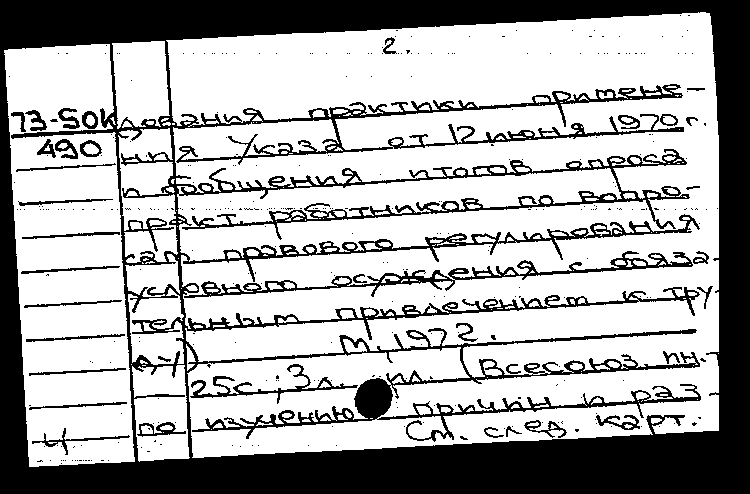 2.
73-50К дования практики примене-
490 ния Указа от 12 июня 1970 г.
и обобщения итогов опроса
практ. работников по вопро-
сам правового регулирования
условного осуждения с обяза-
тельным привлечением к тру-
ду). М., 1972.
25с.; 3л. ил. (Всесоюз. ин-т
по изучению причин и раз-
Ч См. след. карт.